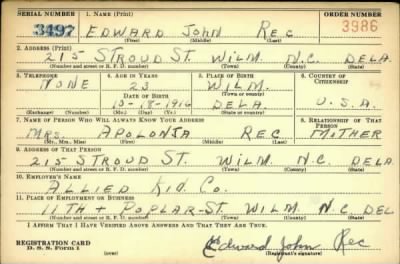 SERIAL NUMBER 1. NAME (Print) ORDER NUMBER
3497 EDWARD JOHN REC 3986
(First) (Middle) (Last)
2. ADDRESS (Print)
215 STROUD ST. WILM. N.C. DELA.
(Number and street or R. F. D. number) (Town) (County) (State)
3. TELEPHONE 4. AGE IN YEARS 5. PLACE OF BIRTH 6. COUNTRY OF CITIZENSHIP
NONE 23 WILM.
DATE OF BIRTH
-18-1916 DELA. U.S.A.
(Exchange) (Number) (Mo.) (Day) (Yr.) (State or country)
7. NAME OF PERSON WHO WILL ALWAYS KNOW YOUR ADDRESS 8. RELATIONSHIP OF THAT PERSON
MRS. APOLONIA REC MOTHER
(Mr., Mrs., Miss) (First) (Middle) (Last)
9. ADDRESS OF THAT PERSON
215 STROUD ST. WILM. N.C. DELA
(Number and street or R. F. D. number) (Town) (County) (State)
10. EMPLOYER'S NAME
ALLIED KID. CO.
11. PLACE OF EMPLOYMENT OR BUSINESS
11TH + POPLAR-ST. WILM. N.C. DEL
(Number and street or R. F. D. number) (Town) (County) (State)
I AFFIRM THAT I HAVE VERIFIED ABOVE ANSWERS AND THAT THEY ARE TRUE.
REGISTRATION CARD
D. S. S. Form 1 (over) Edward John Rec
(Registrant's signature)